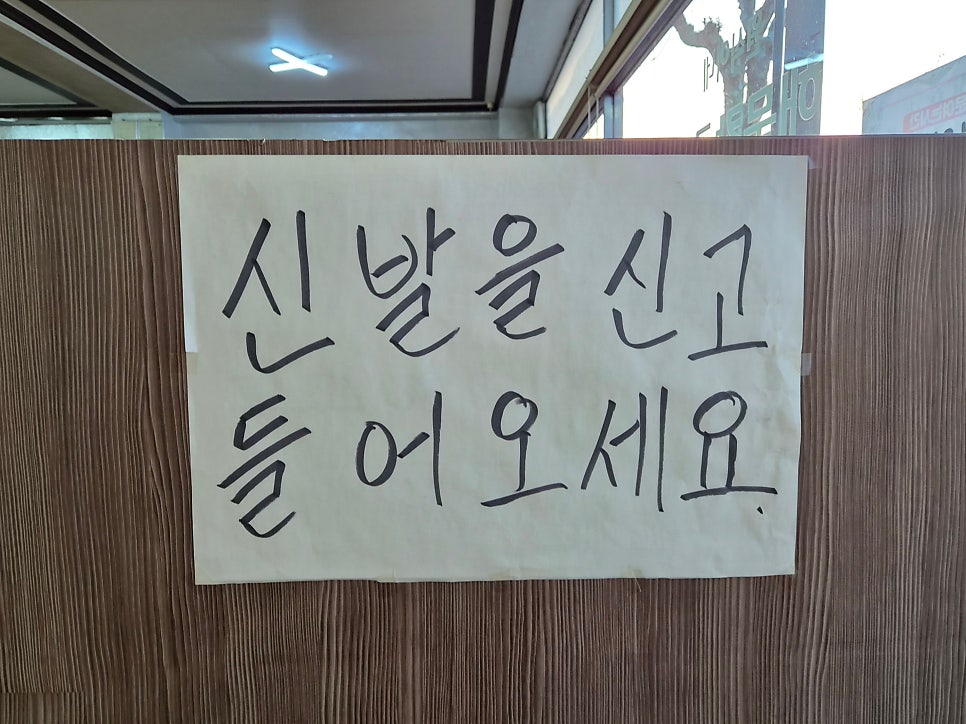 신발을 신고
들어오세요.